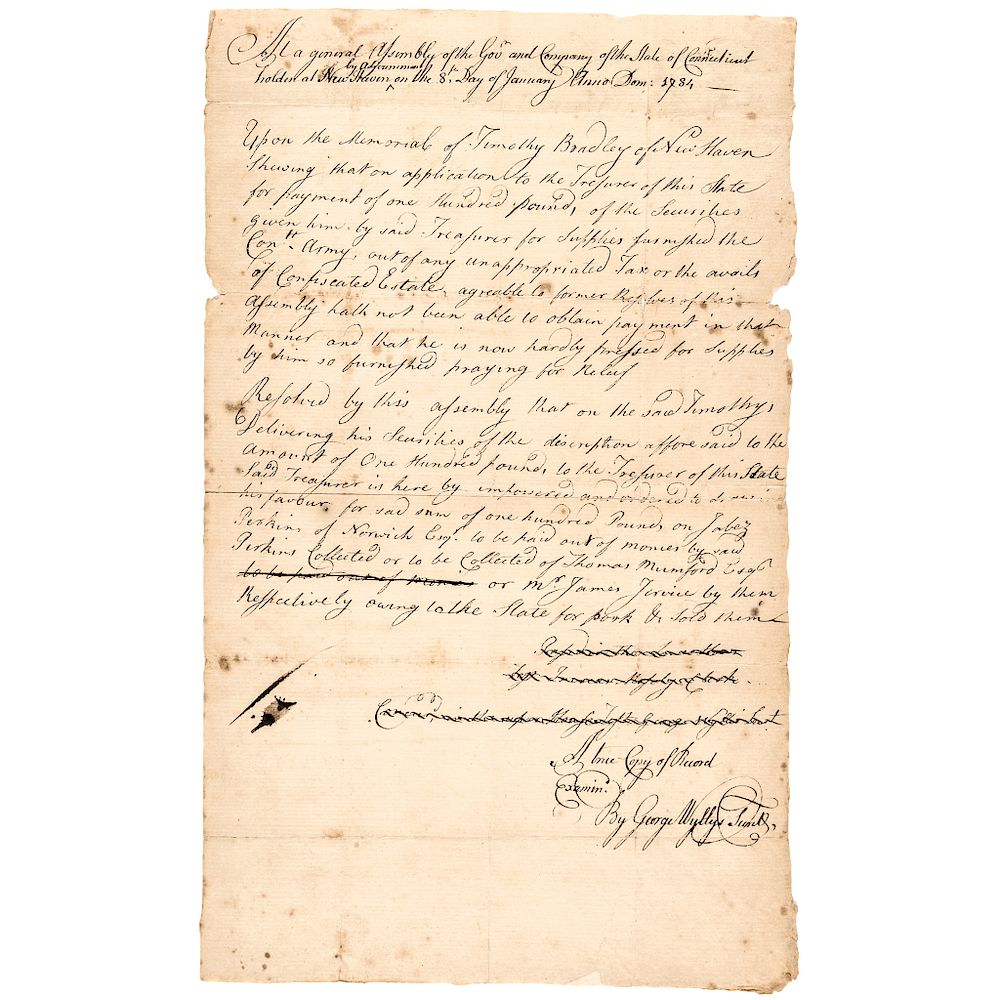 At a general Assembly of the Govr and Company of the State of Connecticut
by adjournment
holden at New Haven ^ on the 8th Day of January Anno Dom: 1784
Upon the Memorial of Timothy Bradley of New Haven
Shewing that on application to the Tresurer of this State
for payment of one Hundred pounds, of the Securities
given him by said Treasurer for Supplies furnished the
Contl Army, out of any unappropriated Tax or the avails
of Confiscated Estate, agreable to former Resolves of this
assembly hath not been able to obtain payment in that
Manner and that he is now hardly pressed for Supplies
by him so furnished praying for Releif
Resolved by this assembly that on the said Timothys
Delivering his Securities of the discription afforesaid to the
amount of One Hundred pounds to the Tresurer of this State
Said Treasurer is here by impowered and ordered to
his favour for sad sum of one hundred Pounds on Jabez
Perkins of Norwich Esqr to be paid out of monies by said
Perkins Collected or to be Collected of Thomas Mumford Esqr
to be paid out of monies or Mr James Jervice by them
Respectively owing to the State for pork &c sold them
Passed in the Lower House
Test Hosley Clerk
Concurred in the upper House Test George Wyllys Secret
A true Copy of Record
Examind
By George Wyllys Secret